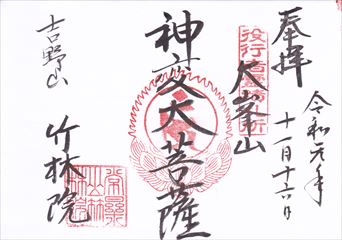 奉拝
令和元年
十一月十六日
大峯山
神変大菩薩
吉野山
竹林院